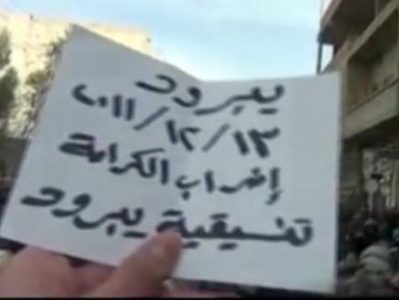 يبرود
٢٠١١/١٢/١٣
إضراب الكرامة
تنسيقية يبرود